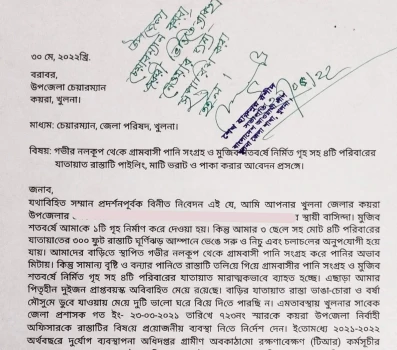 ৩০ মে, ২০২২খ্রি.
বরাবর,
উপজেলা চেয়ারম্যান
কয়রা, খুলনা।
মাধ্যম: চেয়ারম্যান, জেলা পরিষদ, খুলনা।
বিষয়: গভীর নলকূপ থেকে গ্রামবাসী পানি সংগ্রহ ও মুজিবশতবর্ষে নির্মিত গৃহ সহ ৪টি পরিবারের
যাতায়াত রাস্তাটি পাইলিং, মাটি ভরাট ও পাকা করার আবেদন প্রসঙ্গে।
জনাব,
যথাবিহিত সম্মান প্রদর্শনপূর্বক বিনীত নিবেদন এই যে, আমি আপনার খুলনা জেলার কয়রা
উপজেলার স্থায়ী বাসিন্দা। মুজিব
শতবর্ষে আমাকে ১টি গৃহ নির্মাণ করে দেওয়া হয়। কিন্তু আমার ৩ ছেলে সহ মোট ৪টি পরিবারের
যাতায়াতের ৩০০ ফুট রাস্তাটি ঘূর্ণিঝড় আম্পানে ভেঙে সরু ও নিচু এবং চলাচলের অনুপযোগী হয়ে
যায়। আমাদের বাড়িতে স্থাপিত গভীর নলকূপ থেকে গ্রামবাসী পানি সংগ্রহ করে পানির অভাব
মিটায়। কিন্তু সামান্য বৃষ্টি ও বন্যার পানিতে রাস্তাটি তলিয়ে গিয়ে গ্রামবাসীর পানি সংগ্রহ ও মুজিব
শতবর্ষে নির্মিত গৃহ সহ ৪টি পরিবারের যাতায়াত মারাত্মকভাবে ব্যাহত হচ্ছে। এছাড়া আমার
পিতৃহীন দুইজন প্রাপ্তবয়স্ক অবিবাহিত মেয়ে রয়েছে। বাড়ির যাতায়াত রাস্তা ভাঙা-চোরা ও বর্ষা
মৌসুমে ডুবে যাওয়ায় মেয়ে দুটি ভালো ঘরে বিয়ে দিতে পারছি ন। এমতাবস্থায় খুলনার সাবেক
জেলা প্রশাসক গত ইং- ২৩-০৩-২০২১ তারিখে ৭২৩নং স্মারকে কয়রা উপজেলা নির্বাহী
অফিসারকে রাস্তাটির বিষয়ে প্রয়োজনীয় ব্যবস্থা নিতে নির্দেশ দেন। ইতোমধ্যে ২০২১-২০২২
অর্থবছরে দুর্যোগ ব্যবস্থাপনা অধিদপ্তর গ্রামীণ অবকাঠামো রক্ষণাবেক্ষণ (টিআর) কর্মসূচীর